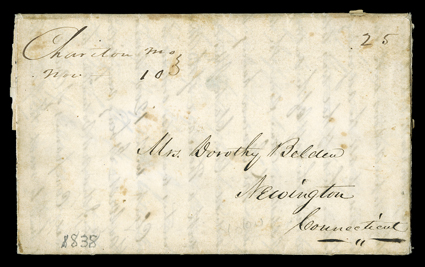 Chariton Mo
Nov 10
25
Mrs. Dorothy Belden
Newington
Connecticut
"
1838